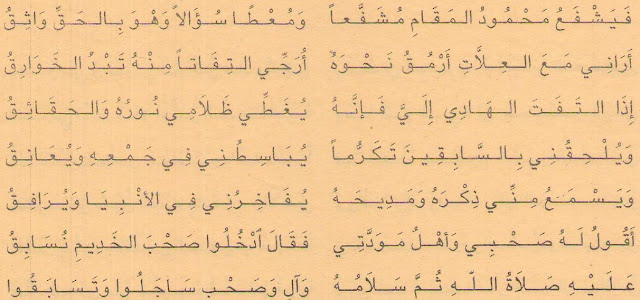 فَيَشْفَعُ مَحْمُودُ المَقَامِ مُشَفَّعاً وَمُعْطًا سُؤَالاً وَهْوَ بِالحَقِّ وَاثِقُ
أَرَانِي مَعَ العِلاَّتِ أَرْمُقُ نَحْوَهُ أُرَجِّي التِفَاتاً مِنْهُ تَبْدُ الخَوَارِقُ
إِذَا التَفَتَ الهَادِي إِلَيَّ فَإِنَّهُ يُغَطِّي ظَلاَمِي نُورُهُ وَالحَقَائِقُ
وَيُلْحِقُنِي بِالسَّابِقِينَ تَكَرُّماً يُبَاسِطُنِي فِي جَمْعِهِ وَيُعَانِقُ
وَيَسْمَعُ مِنِّي ذِكْرَهُ وَمَدِيحَهُ يُفَاخِرُنِي فِي الأَنْبِيَا وَيُرَافِقُ
أَقُولُ لَهُ صَحْبِي وَأَهْلُ مَوَدَّتِي فَقَالَ ٱدْخُلُوا صَحْبَ الخَدِيمِ نُسَابِقُ
عَلَيْهِ صَلاَةُ اللّهِ ثُمَّ سَلاَمُهُ وَآلٍ وَصَحْبٍ سَاجَلُوا وَتَسَابَقُوا